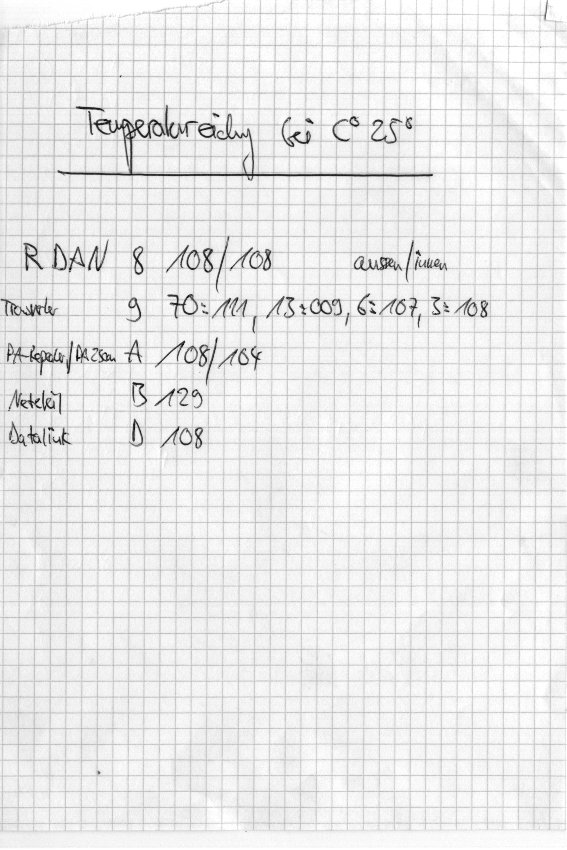 Temperatureichung bei C° 25°
RDAN 8 108/108 aussen/innen
Transverter 9 70=111, 13=009, 6=107, 3=108
PA-Repeater/PA 23cm A 108/104
Netzteil B 129
Datalink D 108